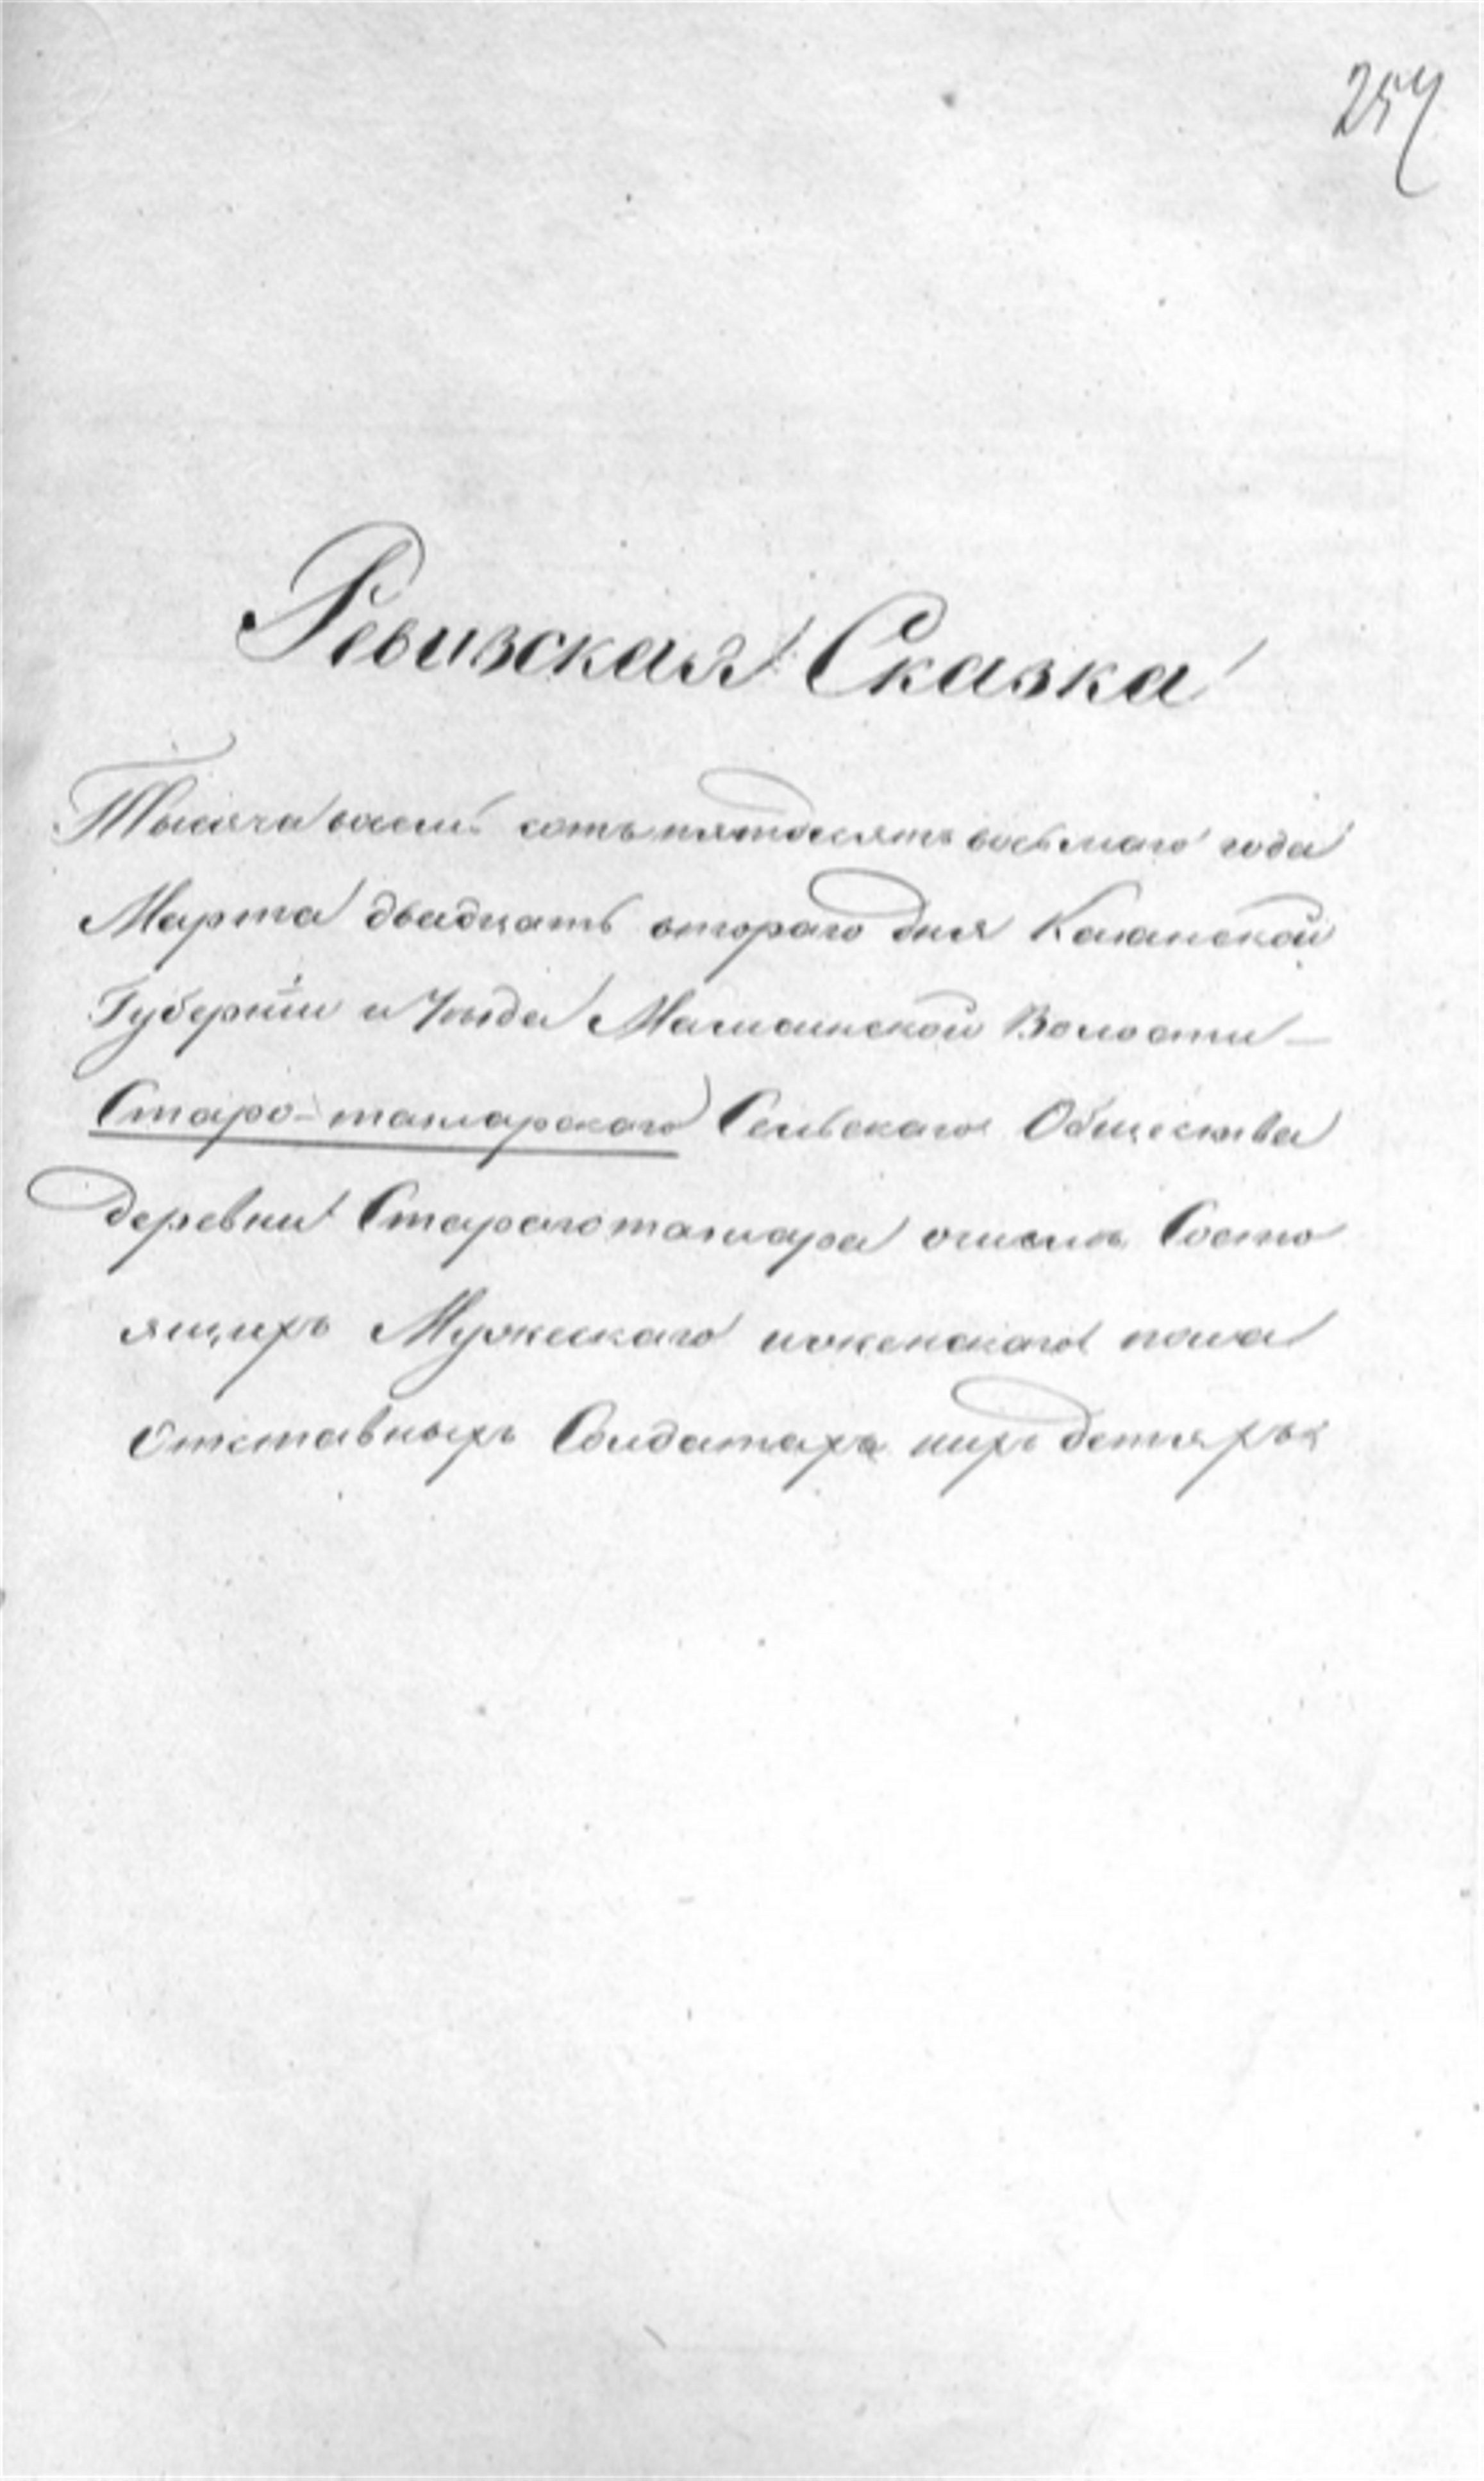 257
Ревизская Сказка
Тысяча восемь сотъ пятдесятъ восьмаго года
Марта двадцать втораго дня Казанской
Губерніи и Уѣзда Мамшинской Волости
Старо-тамарскаго Сельскаго Общества
деревни Старого тамара Состо
ящихъ Мужескаго иженскаго пола
Отставныхъ Солдатахъ иихъ детяхъ